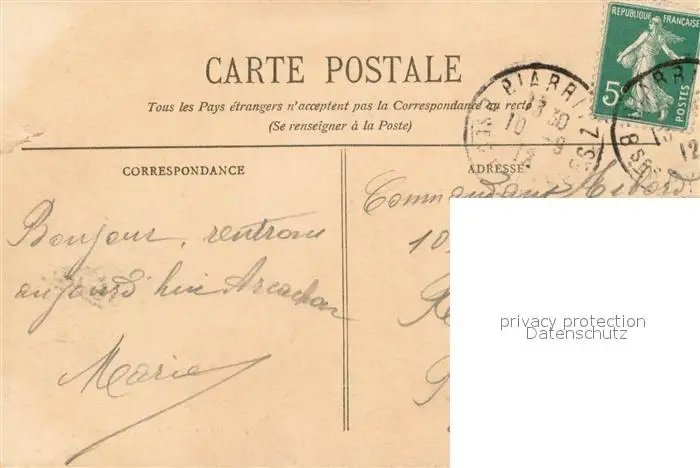 RÉPUBLIQUE FRANÇAISE
5c
POSTES
CARTE POSTALE
BIARRITZ
13 30
10 -9
12
Tous les Pays étrangers n'acceptent pas la Correspondance au recto
(Se renseigner à la Poste)
CORRESPONDANCE
ADRESSE
Bonjour, rentrons
aujourd'hui Arcachon
Marie
Commandant
10
privacy protection
Datenschutz